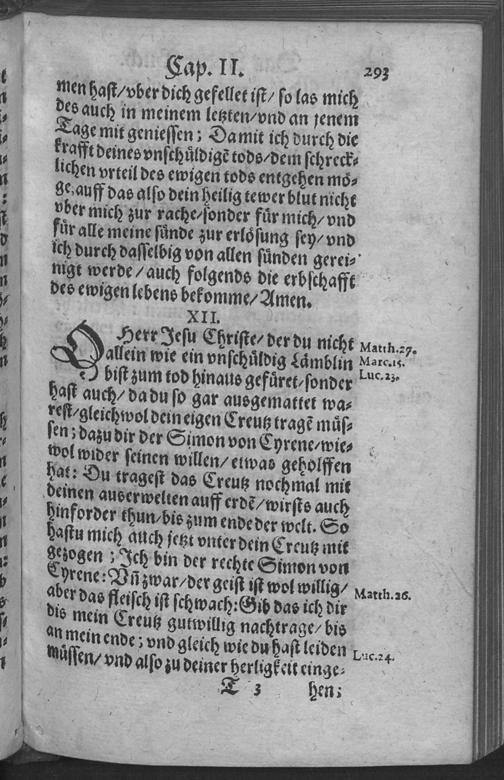 Cap. II. 293
men hast/vber dich gefellet ist/ so las mich
des auch in meinem letzten/vnd an jenem
Tage mit geniessen; Damit ich durch die
krafft deines vnschüldigẽ tods/dem schreck-
lichen vrteil des ewigen tods entgehen mö-
ge, auff das also dein heilig tewer blut nicht
vber mich zur rache/sonder für mich/ vnd
für alle meine sünde zur erlösung sey/ vnd
ich durch dasselbig von allen sünden gerei-
nigt werde / auch folgends die erbschafft
des ewigen lebens bekomme/ Amen.
XII.
O Herr Jesu Christe/ der du nicht Matth.27.
allein wie ein vnschüldig Lämblin Marc.15.
bist zum tod hinaus gefüret/sonder Luc.23.
hast auch/ da du so gar ausgemattet wa-
rest/gleichwol dein eigen Creutz tragẽ müs-
sen; dazu dir der Simon von Cyrene/wie-
wol wider seinen willen/ etwas geholffen
hat: Du tragest das Creutz nochmal mit
deinen auserwelten auff erdẽ/ wirsts auch
hinforder thun/ bis zum ende der welt. So
hastu mich auch jetzt vnter dein Creutz mit
gezogen ; Ich bin der rechte Simon von
Cyrene: Vñ zwar/der geist ist wol willig/
aber das fleisch ist schwach: Gib das ich dir Matth.26.
dis mein Creutz gutwillig nachtrage/ bis
an mein ende; vnd gleich wie du hast leiden
müssen/ vnd also zu deiner herligkeit einge- Luc.24.
T 3 hen;